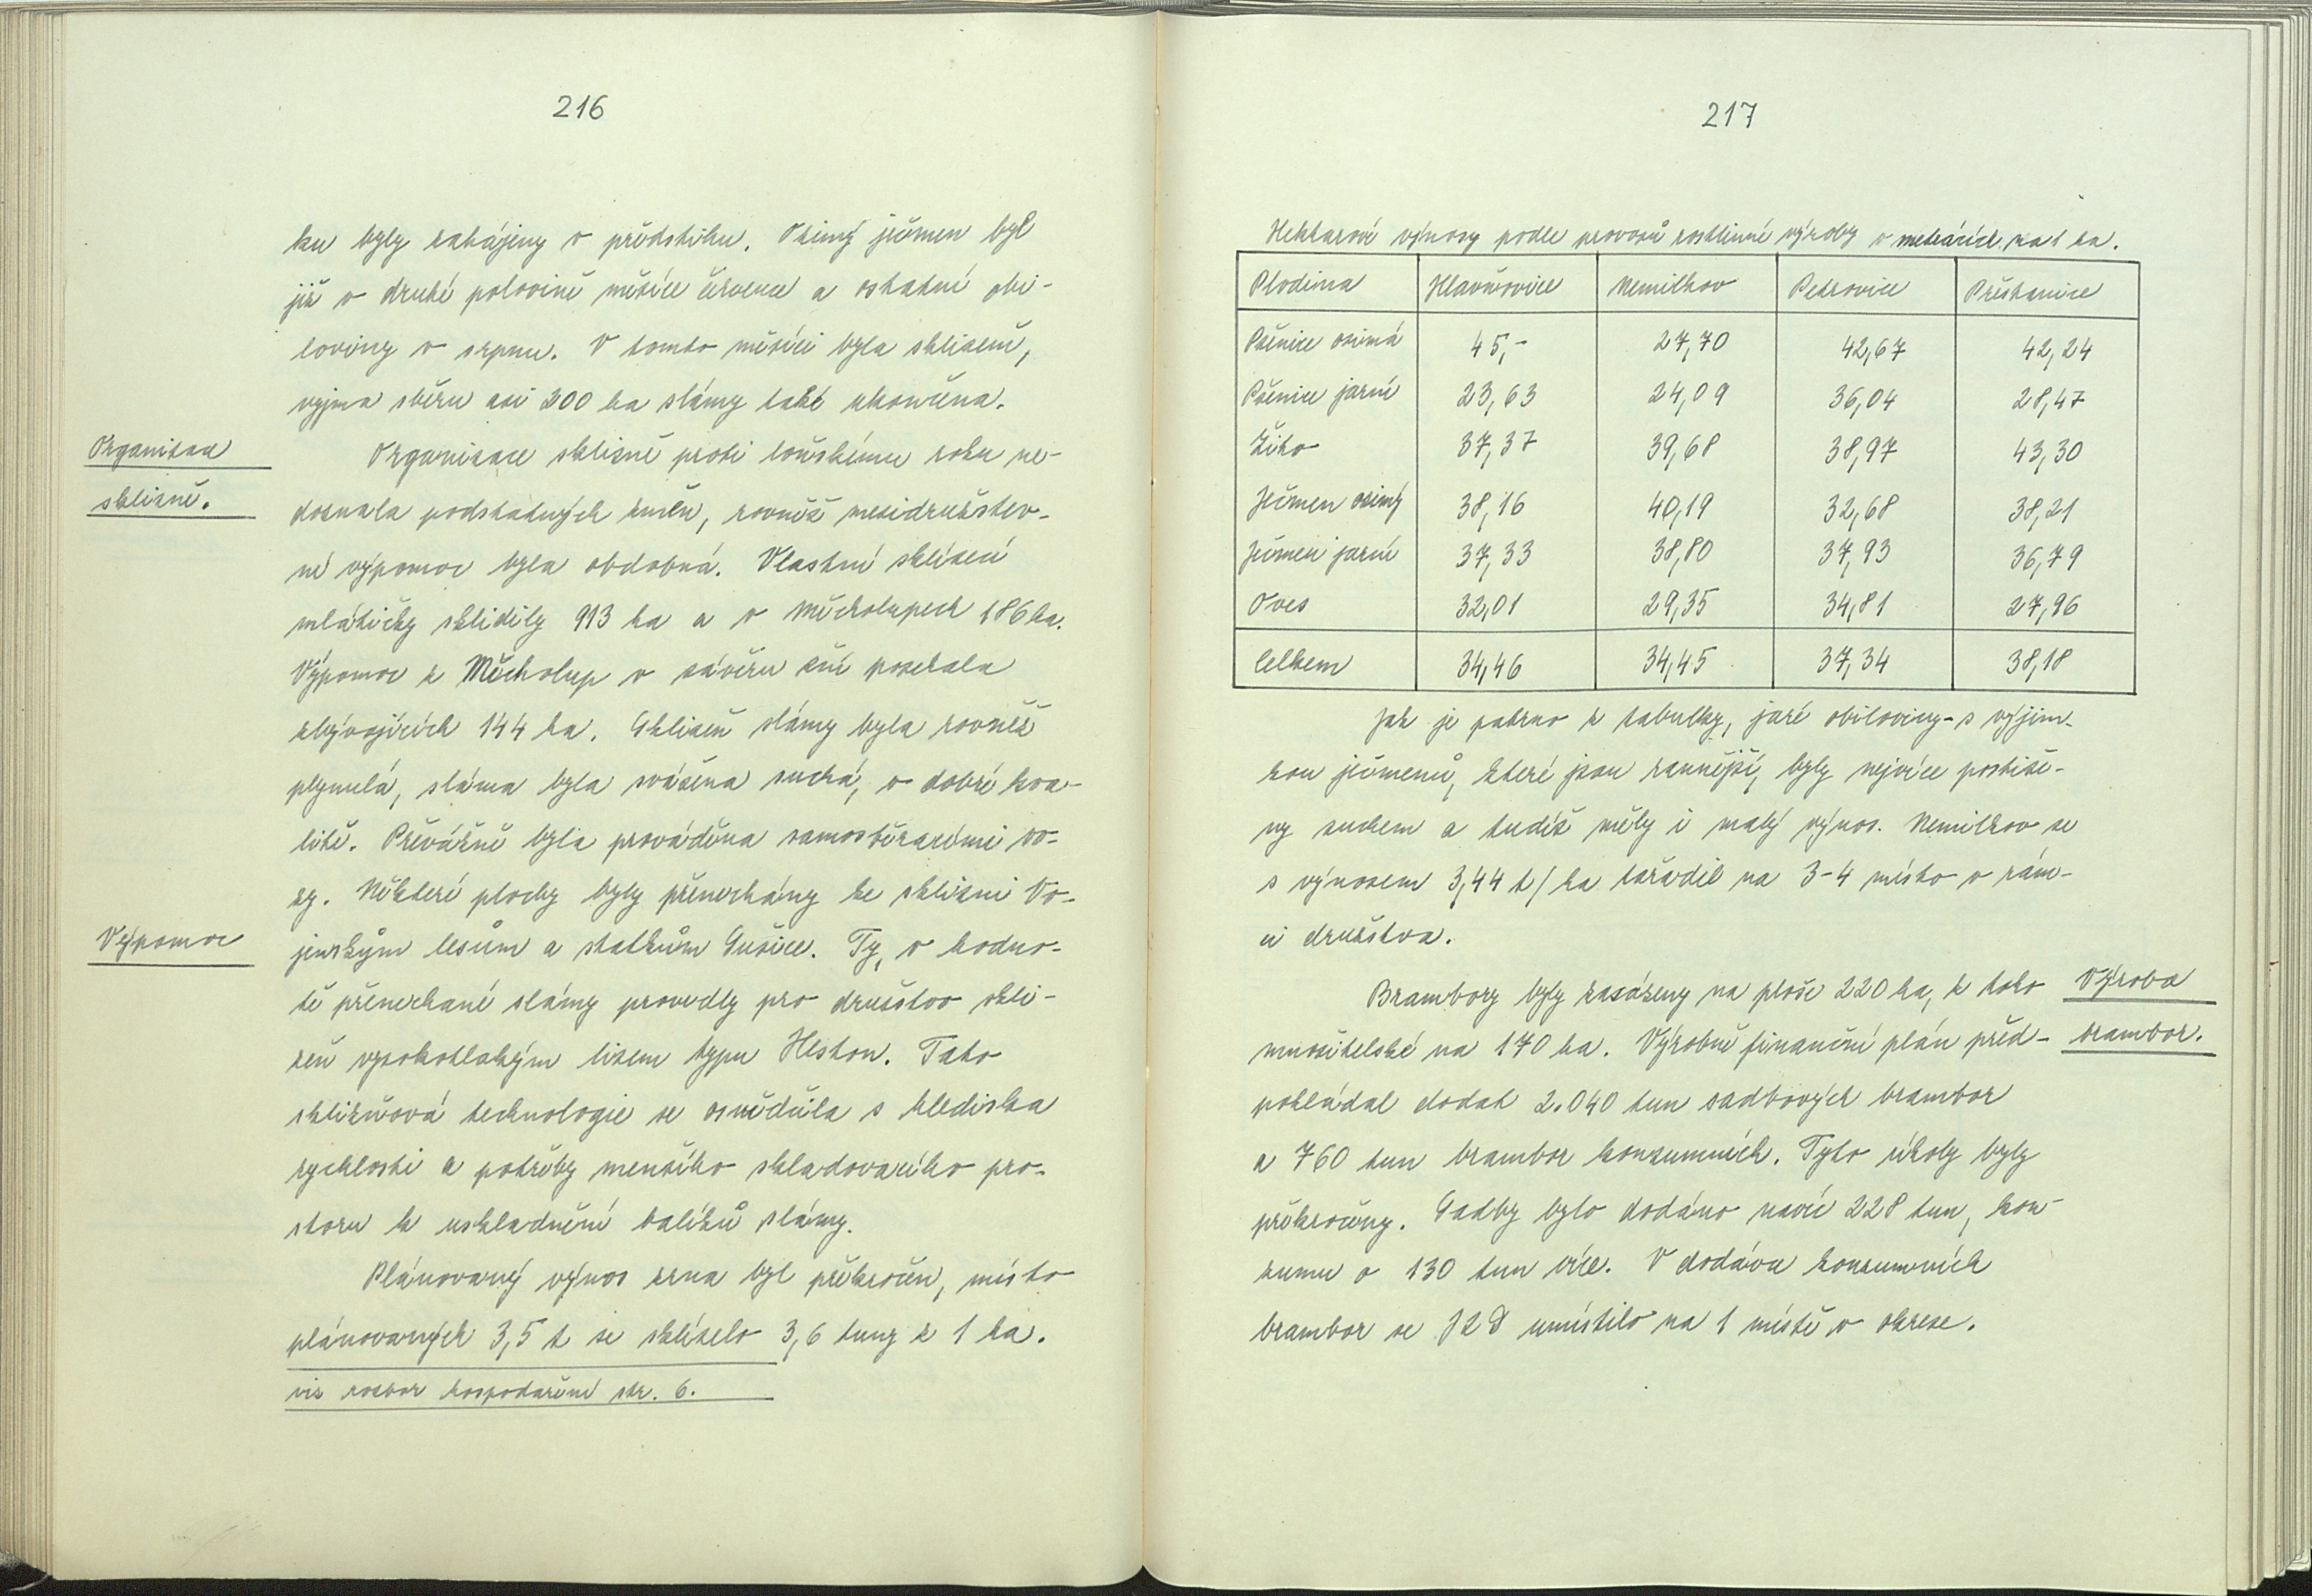 216
ku byly zahájeny v předstihu. Ozimý ječmen byl
již v druhé polovině měsíce července a ostatní obi-
loviny v srpnu. V tomto měsíci byla sklizeň,
vyjma sběru asi 200 ha slámy také ukončena.
Organizace
sklizně.
Organizace sklizně proti loňskému roku ne-
doznala podstatných změn, rovněž mezidružstev-
ní výpomoc byla obdobná. Vlastní sklízecí
mlátičky sklidily 913 ha a v Měcholupech 186 ha.
Výpomoc z Měcholup v závěru žní posekala
zbývajících 144 ha. Sklizeň slámy byla rovněž
plynulá, sláma byla svážena suchá, v dobré kva-
litě. Převážně byla prováděna samosběracími vo-
zy. Některé plochy byly přenechány ke sklizni Vo-
Výpomoc
jenským lesům a statkům Sušice. Ty, v hodno-
tě přenechané slámy provedly pro družstvo skli-
zeň vysokotlakým lisem typu Heston. Tato
sklizňová technologie se osvědčila s hlediska
rychlosti a potřeby menšího skladovacího pro-
storu k uskladnění balíků slámy.
Plánovaný výnos zrna byl překročen, místo
plánovaných 3,5 t se sklízelo 3,6 tuny z 1 ha.
viz rozbor hospodaření str. 6.
217
Hektarové výnosy podle provozů rostlinné výroby v metrácích na 1 ha.
Plodina Hlavňovice Nemilkov Petrovice Přestanice
Pšenice ozimá 45,- 27,70 42,67 42,24
Pšenice jarní 23,63 24,09 36,04 28,47
Žito 37,37 39,68 38,97 43,30
Ječmen ozimý 38,16 40,19 32,68 38,21
Ječmen jarní 37,33 38,80 37,93 36,79
Oves 32,01 29,35 34,81 27,96
Celkem 34,46 34,45 37,34 38,18
Jak je patrno z tabulky, jaré obiloviny - s výjim-
kou ječmenů, které jsou rannější, byly nejvíce postiže-
ny suchem a tudíž měly i malý výnos. Nemilkov se
s výnosem 3,44 t/ha zařadil na 3-4 místo v rám-
ci družstva.
Brambory byly zasázeny na ploše 220 ha, z toho
Výroba
brambor.
množitelské na 170 ha. Výrobně finanční plán před-
pokládal dodat 2.040 tun sadbových brambor
a 760 tun brambor konzumních. Tyto úkoly byly
překročeny. Sadby bylo dodáno navíc 228 tun, kon-
zumu o 130 tun více. V dodávce konzumních
brambor se JZD umístilo na 1 místě v okrese.